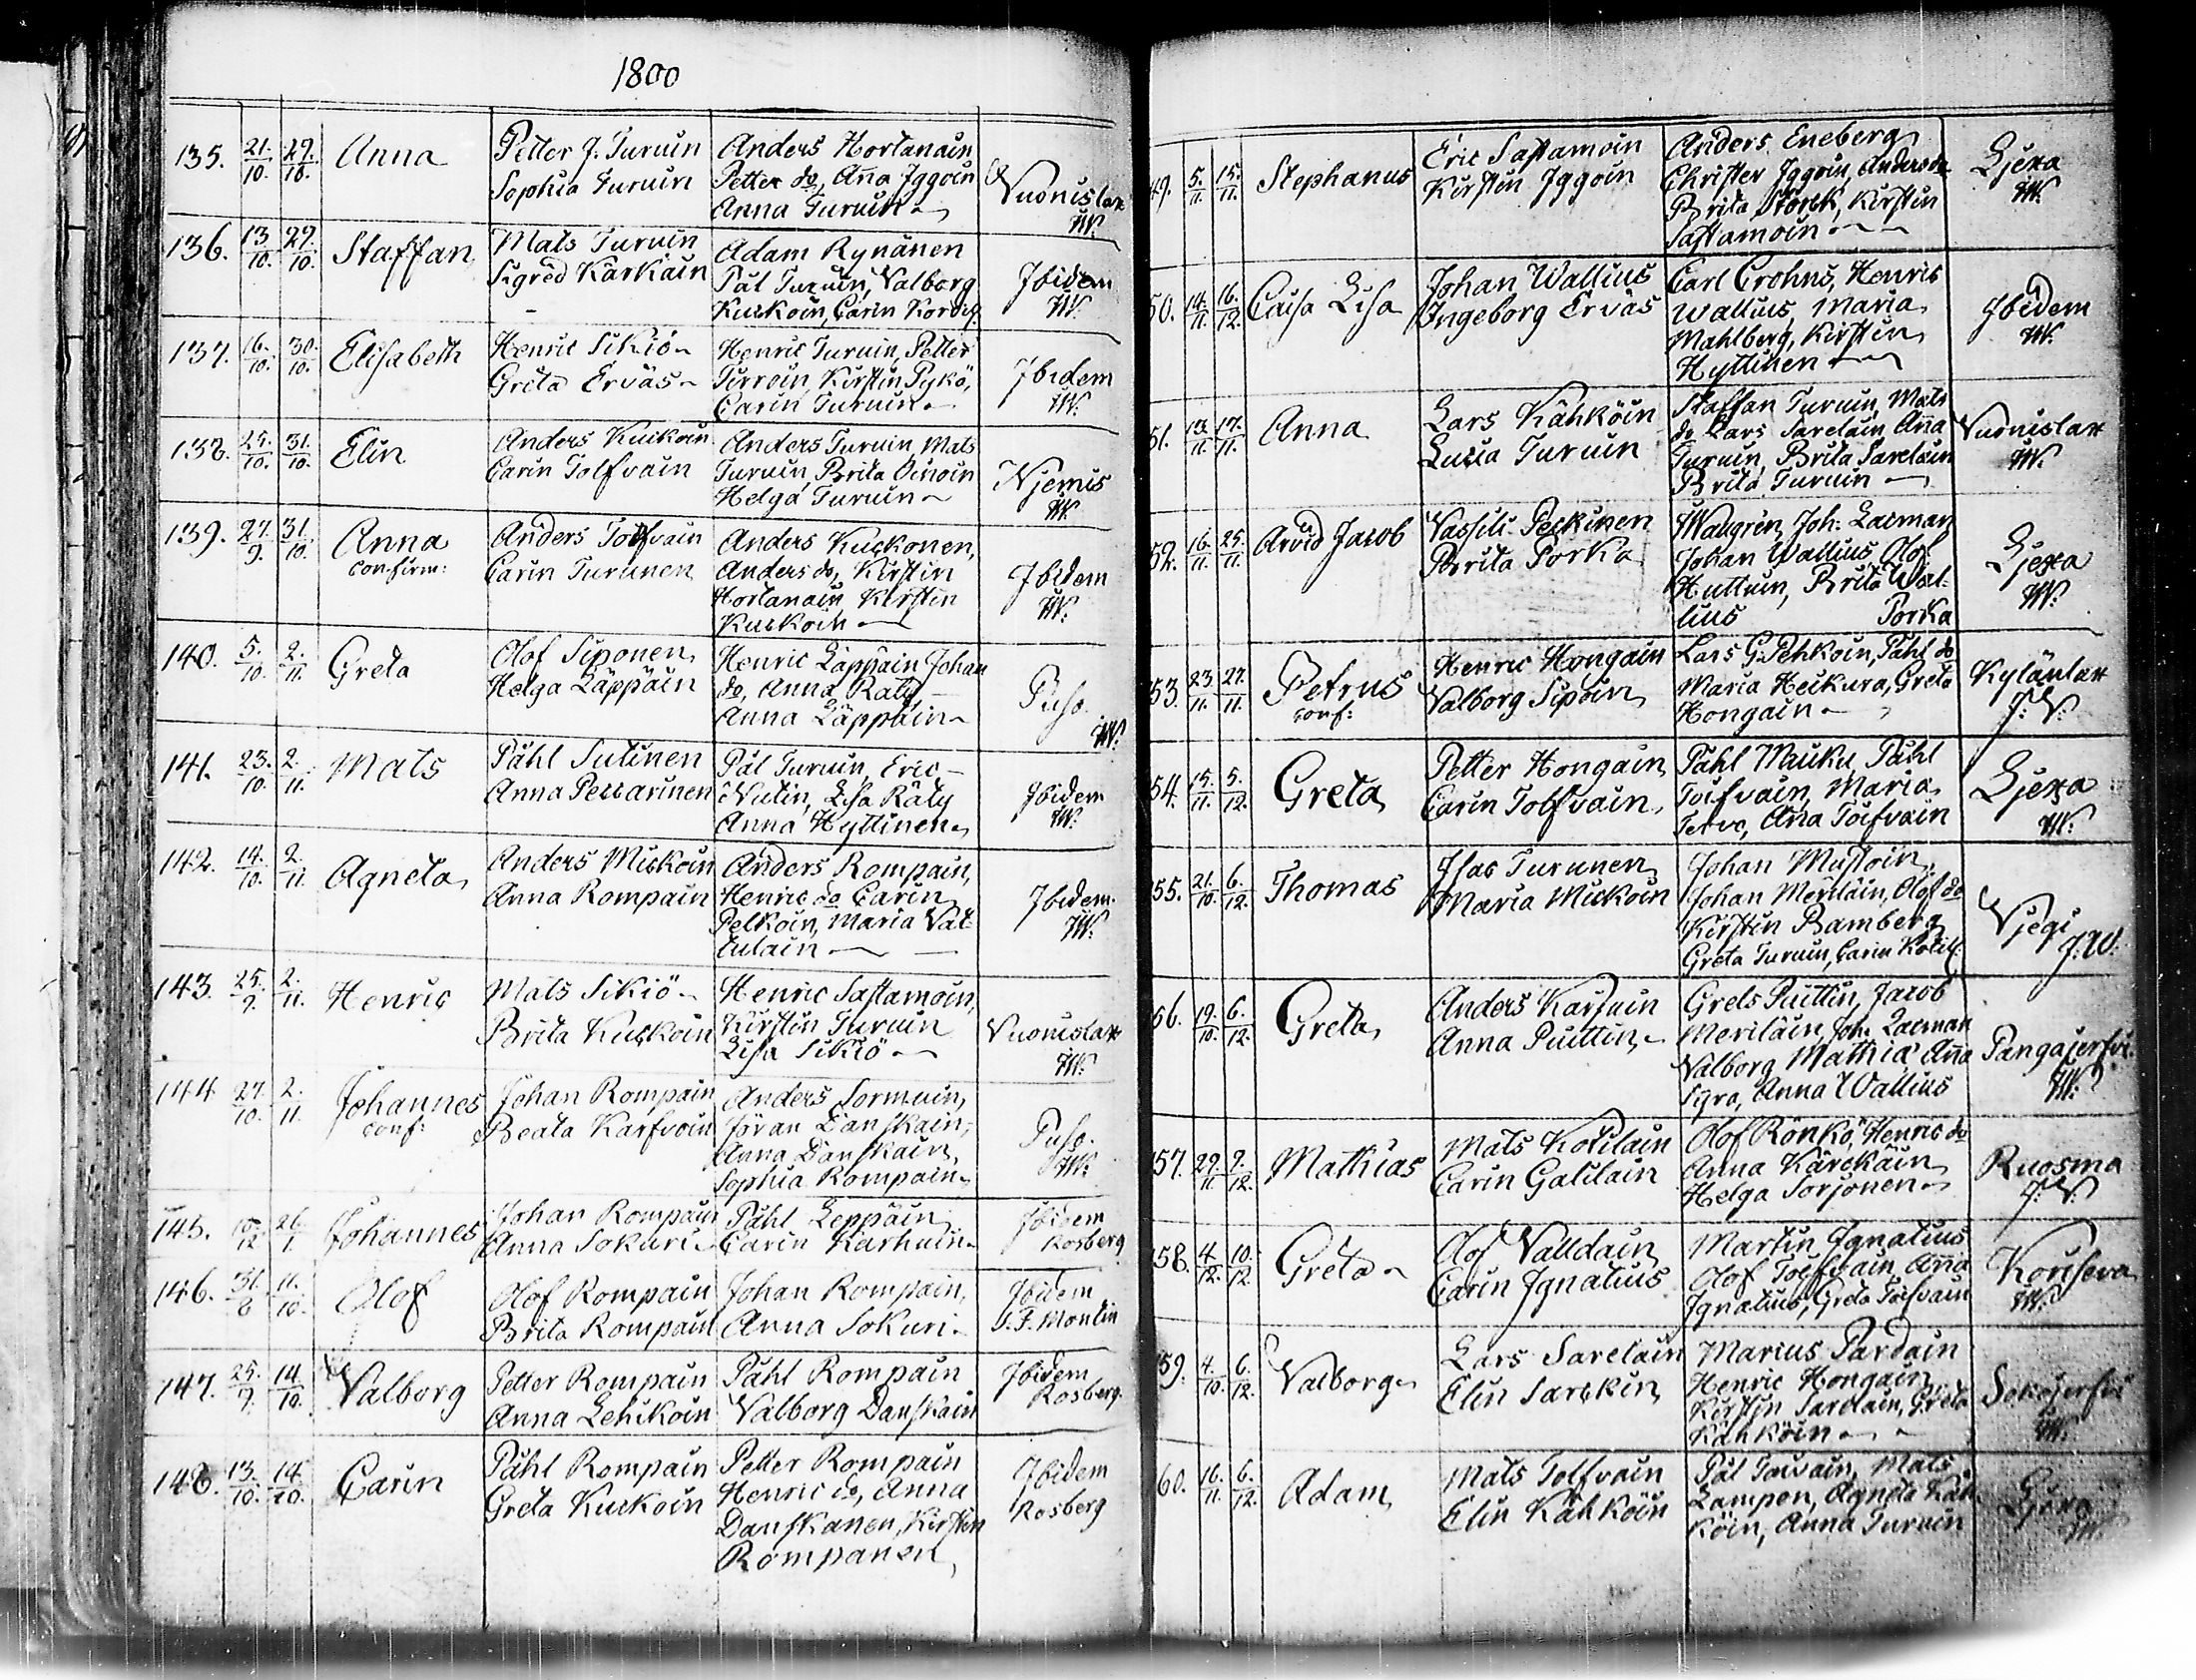 1800
135. 21./10. 29./10. Anna Petter J. Turuin Anders Hortanain
Sophia Turuin Petter do, Aña Iggoin Vuonislax
Anna Turuin W.
136. 13./10. 29./10. Staffan Mats Turuin Adam Rynänen
Sigred Kärkäin Pål Turuin, Valborg Ibidem
Kuckoin, Carin W.
137. 16./10. 30./10. Elisabeth Henric Sikiö Henric Turuin, Petter
Greta Ervas Turroin, Kirstin Pykö, Ibidem
Carin Turuin W.
138. 25./10. 31./10. Elin Anders Kuckoin Anders Turuin, Mats
Carin Tolfvain Turuin, Brita Oinoin Njemis
Helga Turuin W.
139. 27./9. 31./10. Anna Anders Tolfvain Anders Kuckonen,
confirm: Carin Turunen Anders do, Kirstin Ibidem
Hortanain, Kirstin W.
Kuckoin
140. 5./10. 2./11. Greta Olof Siponen Henric Läppäin, Johan
Helga Läppäin do, Anna Räty, Puso
Anna Läppäin W.
141. 23./10. 2./11. Mats Påhl Sutinen Pål Turuin, Eric
Anna Peccarinen Nutin, Lisa Räty Ibidem
Anna Hyttinen W.
142. 14./10. 2./11. Agneta Anders Mickoin Anders Rompain,
Anna Rompain Henric do Carin Ibidem.
Pelkoin, Maria Vat- W.
tulain
143. 25./9. 2./11. Henric Mats Sikiö Henric Sastamoin,
Brita Kuckoin Kirstin Turuin Vuonislax
Lisa Sikiö W.
144. 27./10. 2./11. Johannes Johan Rompain Anders Sormuin,
conf: Beata Karfvoin Jöran Danskain, Puso.
Anna Danskain, W.
Sophia Rompain
145. 10./12 26/1. Johannes Johan Rompain Påhl Leppäin Ibidem
Anna Sokuri Carin Karhuin Rosberg
146. 31./8 11./10. Olof Olof Rompain Johan Rompain, Ibidem
Brita Rompain Anna Sokuri J. F. Montin
147. 25./7. 14./10. Valborg Petter Rompain Påhl Rompain Ibidem
Anna Lehikoin Valborg Danskain Rosberg
148. 13./10. 14./10. Carin Påhl Rompain Petter Rompain Ibidem
Greta Kuckoin Henric do, Anna Rosberg
Danskanen, Kirstin
Rompanen
49. 5./11. 15./11. Stephanus Eric Sastamoin Anders Eneberg
Kirstin Iggoin Christer Iggoin, Anders do Ljexa
Brita Storck, Kirstin W.
Sastamoin
50. 14./11. 16./12. Caisa Lisa Johan Wallius Carl Crohns, Henric
Ingeborg Ervas Wallius, Maria Ibidem
Mahlberg, Kirstin W.
Hyttinen
51. 13./11. 17./11. Anna Lars Kähköin Staffan Turuin, Mats
Lucia Turuin do Lars Sarelain, Aña Vuonislax
Turuin, Brita Sarelain W.
Brita Turuin
52. 16./11. 25./11. Arvid Jacob Vassili Peckinen Joh: Lacman
Brita Porka Johan Wallius, Olof Ljexa
Huttuin, Brita Wal- W.
lius Porka
53. 23./11. 27./11. Petrus Henric Hongain Lars G. Pehkoin, Påhl do
conf: Valborg Sipoin Maria Heikura, Greta Kyläntax
Hongain J. V.
54. 15./11. 5./12. Greta Petter Hongain Påhl Mauku, Påhl
Carin Tolfvain Toifvain, Maria Ljexa
Tervo, Aña Toifvain W.
55. 21./10. 6./12. Thomas Isac Turunen Johan Mustoin
Maria Mickoin Johan Meriläin, Olof do
Kirstin Bamberg Vjegi
Greta Turuin, Carin J. W.
56. 19./10. 6./12. Greta Anders Karfuin Grels Puittin, Jacob
Anna Puittin Meriläin, Joh. Lacman
Valborg Mathia Aña Pangajerfvi
Syra, Anna Wallius W.
57. 29./11. 9./12. Mathias Mats Kotilain Olof Rönkö, Henric do
Carin Galilain Anna Kärckäin Ruosma
Helga Sorjonen J. V.
58. 4./12. 10./12. Greta Olof Valldain Martin Ignatius
Carin Ignatius Olof Toifvain, Aña Koriseva
Ignatius, Greta Toifvain W.
59. 4./10. 6./12. Valborg Lars Sarelain Marcus Pardain
Elin Sarckin Henric Hongain Sokojerfvi
Kirstin Sarelain, Greta W.
Kähköin
60. 16./11. 6./12. Adam Mats Tolfvain Pål Toivain, Mats
Elin Kähköin Lampen, Agneta Käh- Ljexa
köin, Anna Turuin W.